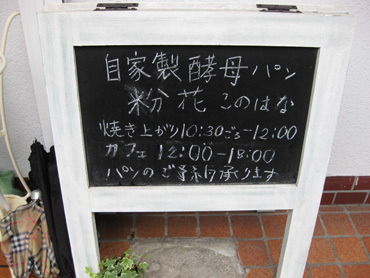 自家製酵母パン
粉花 このはな
焼き上がり10:30ごろ-12:00
カフェ 12:00-18:00
パンのご予約承ります